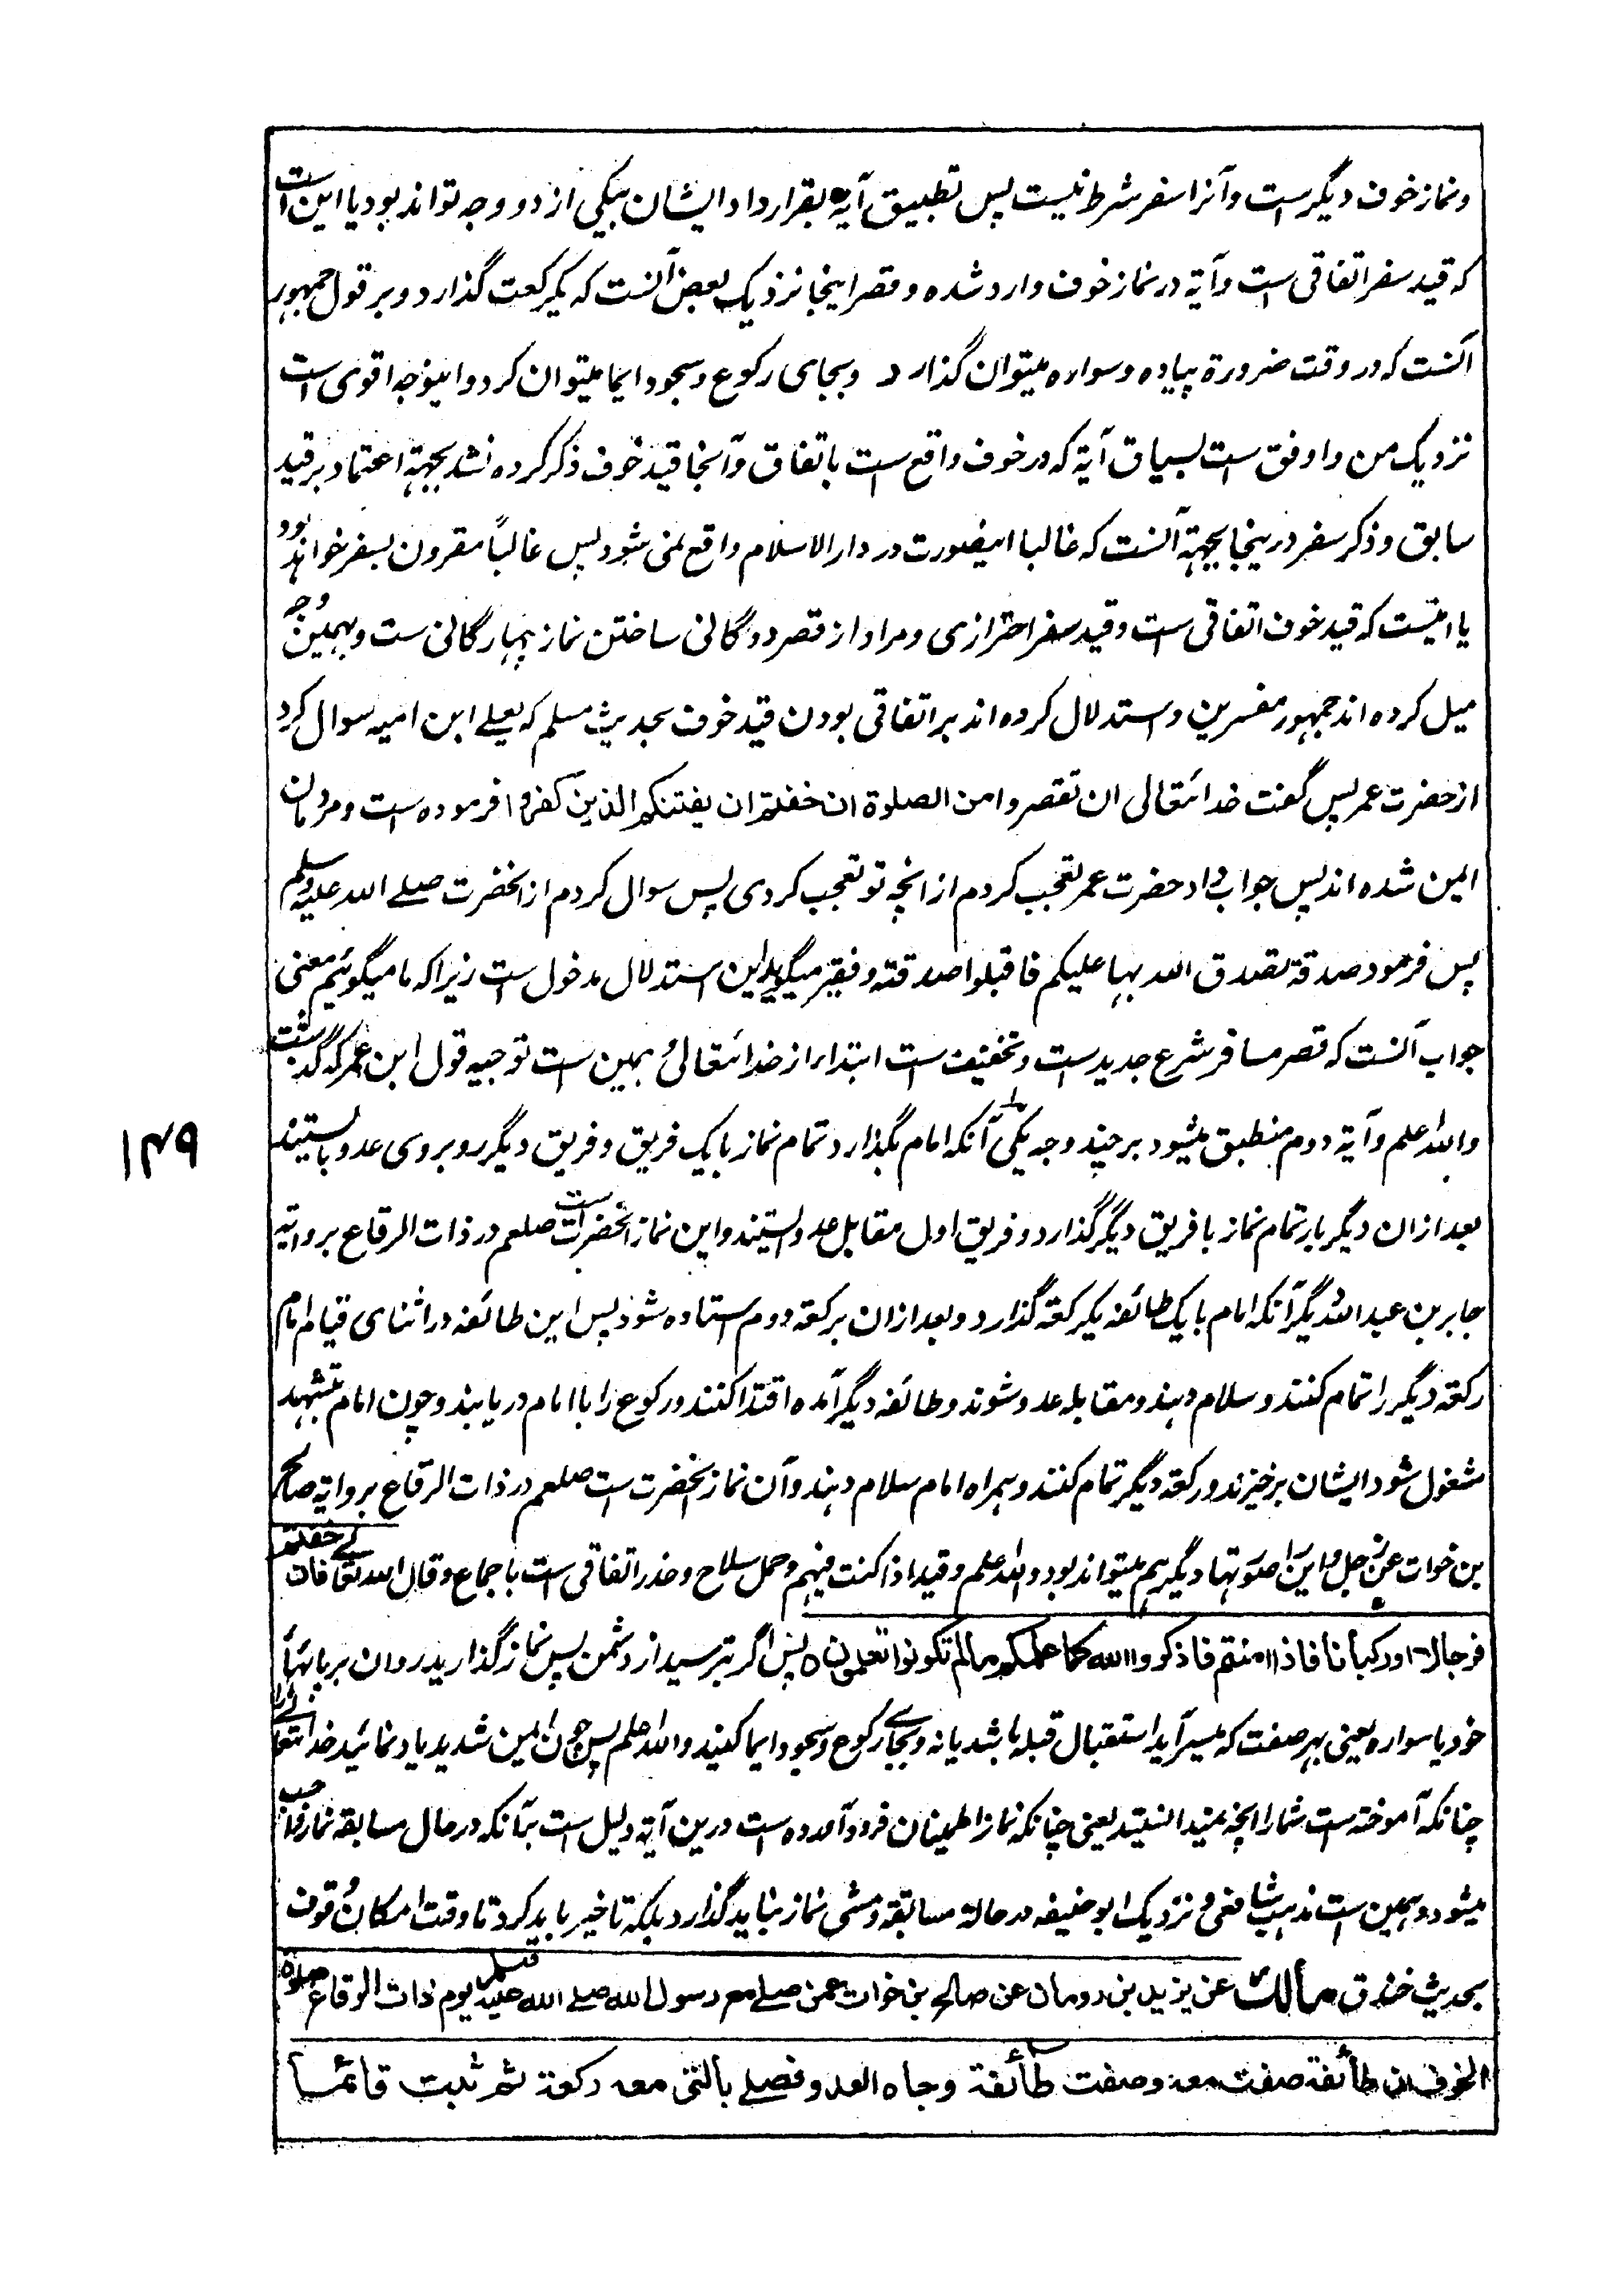 ونماز خوف دیگرست وآنرا سفر شرط نیست پس تطبیق آیه بقرارداد ایشان بیکی از دو وجه تواند بود یا این است
که قید سفر اتفاقی است وآیة در نماز خوف وارد شده و قصر اینجا نزدیک بعض آنست که یکرکعت گذارد و بر قول جمهور
آنست که در وقت ضرورة پیاده و سواره میتوان گذارد وبجای رکوع وسجود ایما میتوان کرد واینوجه اقوی است
نزدیک من واوفق است بسیاق آیة که در خوف واقع است باتفاق وآنجا قید خوف ذکر کرده نشد بجهة اعتماد بر قید
سابق وذکر سفر درینجا بجهة آنست که غالبا اینصورت در دار الاسلام واقع نمی شود پس غالباً مقرون بسفر خواهد بود
یا اینست که قید خوف اتفاقی است وقید سفر احترازی ومراد از قصر دوگانی ساختن نماز چهارگانی ست وبهمین وجه
میل کرده اند جمهور مفسرین واستدلال کرده اند بر اتفاقی بودن قید خوف بحدیث مسلم که یعلے ابن امیه سوال کرد
از حضرت عمر پس گفت خدائتعالی ان تقصروا من الصلوة ان خفتم ان یفتنکم الذین کفروا فرموده است ومردمان
ایمن شده اند پس جواب داد حضرت عمر تعجب کردم از انچه تو تعجب کردی پس سوال کردم از آنحضرت صلے الله علیه وسلم
پس فرمود صدقة تصدق الله بها علیکم فاقبلوا صدقته وفقیر میگوید این استدلال مدخول است زیراکه ما میگوئیم معنی
جواب آنست که قصر مسافر شرع جدیدست وتخفیف است ابتداء از خدائتعالی وهمین است توجیه قول ابن عمر که گذشت
والله اعلم وآیة دوم منطبق میشود بر چند وجه یکی آنکه امام بگذارد تمام نماز با یک فریق وفریق دیگر روبروی عدو بایستند
بعد ازان دیگر بار تمام نماز با فریق دیگر گذارد وفریق اول مقابل عدو ایستند واین نماز آنحضرت است صلعم در ذات الرقاع بروایة
جابر بن عبد الله دیگر آنکه امام با یک طائفه یکرکعة گذارد وبعد ازان برکعة دوم استاده شود پس این طائفه در اثنای قیام امام
رکعة دیگر را تمام کنند وسلام دهند ومقابله عدو شوند وطائفه دیگر آمده اقتدا کنند ورکوع را با امام دریابند وچون امام بتشهد
مشغول شود ایشان برخیزند ورکعة دیگر تمام کنند وهمراه امام سلام دهند وآن نماز آنحضرت است صلعم در ذات الرقاع بروایة صالح
بن خوات عن رجل واین را صورتها دیگر هم میتواند بود والله اعلم وقید اذا کنت فیهم وحمل سلاح وحذر اتفاقی است باجماع وقال الله تعالے فان خفتم
فرجالا اورکبانا فاذا امنتم فاذکروا الله کما علمکم مالم تکونوا تعلمون پس اگر ترسید از دشمن پس نماز گذارید روان بر پایهای
خود یا سواره یعنی بهر صفت که میسر آید استقبال قبله باشد یا نه وبجاے رکوع وسجود ایما کنید والله اعلم پس چون ایمن شدید یاد نمائید خدائتعالے را
چنانکه آموخته است شما را آنچه نمیدانستید یعنی چنانکه نماز اطمینان فرود آمده است درین آیة دلیل است بآنکه در حال مسابقه نماز واجب
میشود وهمین است مذهب شافعی ونزدیک ابو حنیفه در حالة مسابقه ومشی نماز نباید گذارد بلکه تاخیر باید کرد تا وقت امکان وقوف
بحدیث خندق مالك عن یزید بن رومان عن صالح بن خوات عمن صلے مع رسول الله صلے الله علیه وسلم یوم ذات الرقاع صلوة
الخوف ان طائفة صفت معه وصفت طائفة وجاه العدو فصلے بالتی معه رکعة ثم ثبت قائما
۱۴۹